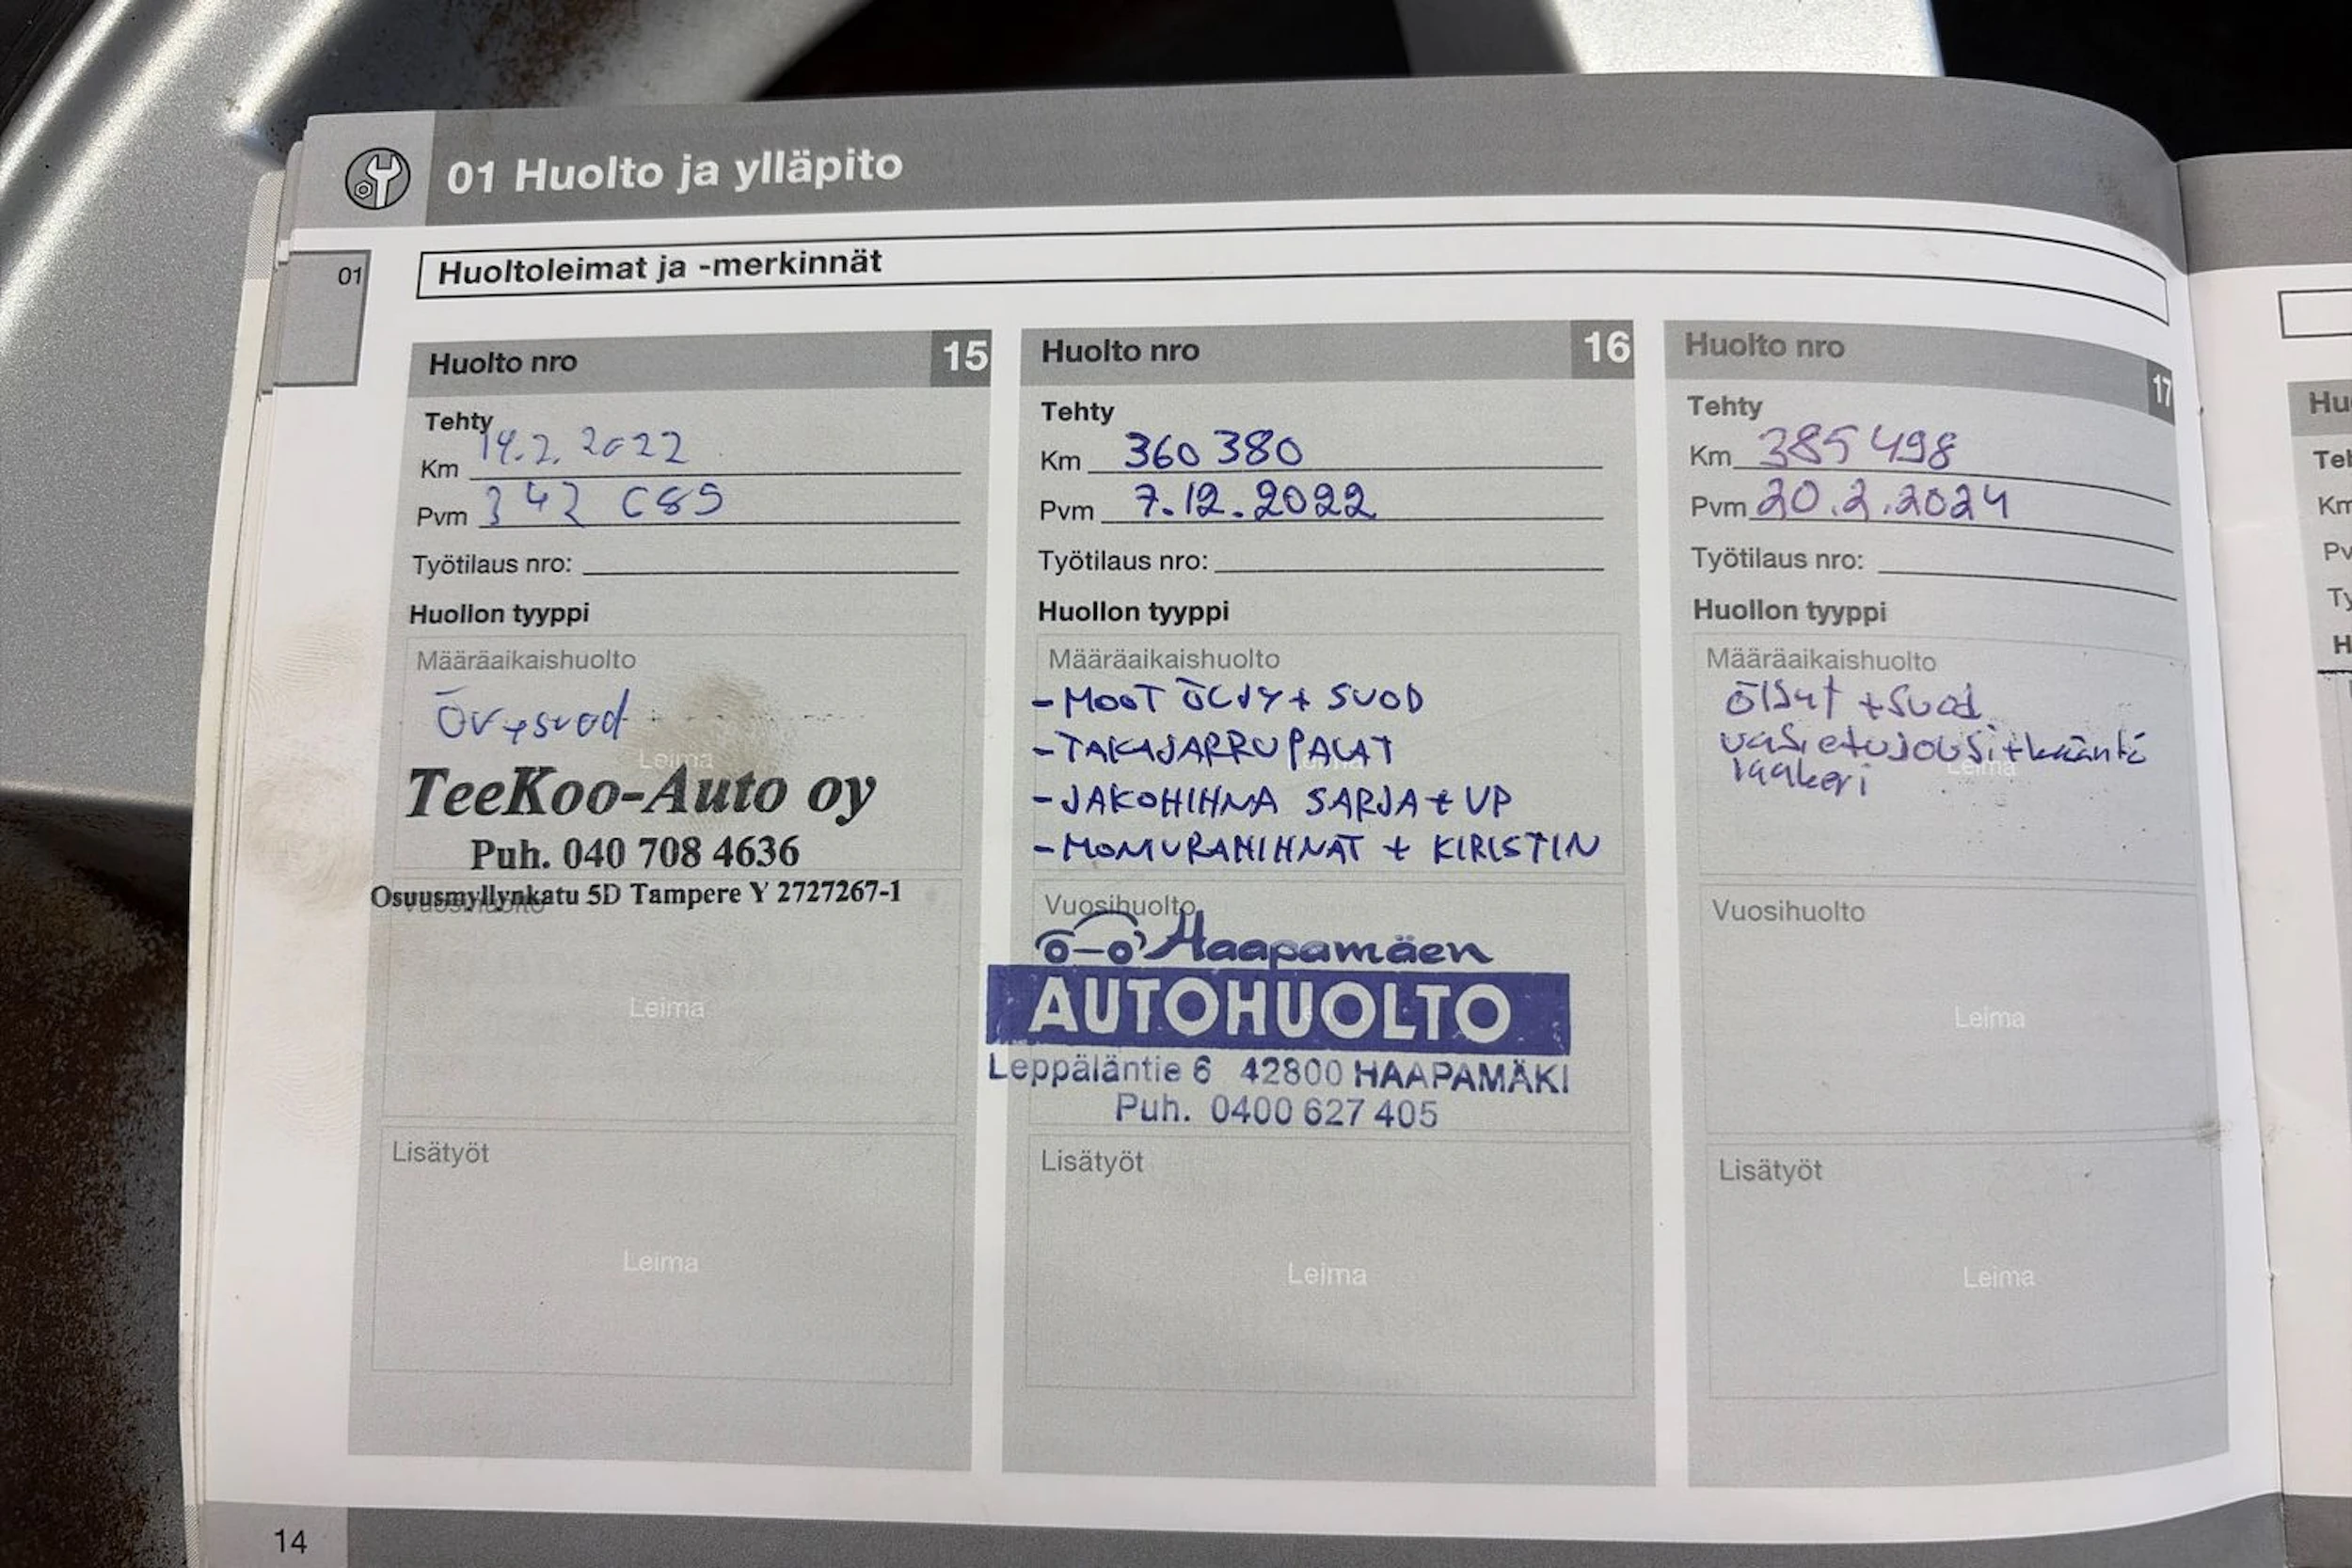 01 Huolto ja ylläpito
01
Huoltoleimat ja -merkinnät
Huolto nro 15
Tehty
Km 14.2.2022
Pvm 342 685
Työtilaus nro:
Huollon tyyppi
Määräaikaishuolto
Öv+suod
Leima
TeeKoo-Auto oy
Puh. 040 708 4636
Osuusmyllynkatu 5D Tampere Y 2727267-1
Vuosihuolto
Leima
Lisätyöt
Leima
Huolto nro 16
Tehty
Km 360 380
Pvm 7.12.2022
Työtilaus nro:
Huollon tyyppi
Määräaikaishuolto
- MOOT ÖLJY + SUOD
- TAKAJARRUPALAT
- JAKOHIHNA SARJA + VP
- MONIURAHIHNAT + KIRISTIN
Vuosihuolto
Haapamäen
AUTOHUOLTO
Leppäläntie 6 42800 HAAPAMÄKI
Puh. 0400 627 405
Lisätyöt
Leima
Huolto nro 17
Tehty
Km 385 498
Pvm 20.2.2024
Työtilaus nro:
Huollon tyyppi
Määräaikaishuolto
öljyt + suod
vas. etujousi + kääntö
laakeri
Leima
Vuosihuolto
Leima
Lisätyöt
Leima
14
Hu
Teh
Km
Pv
Ty
H